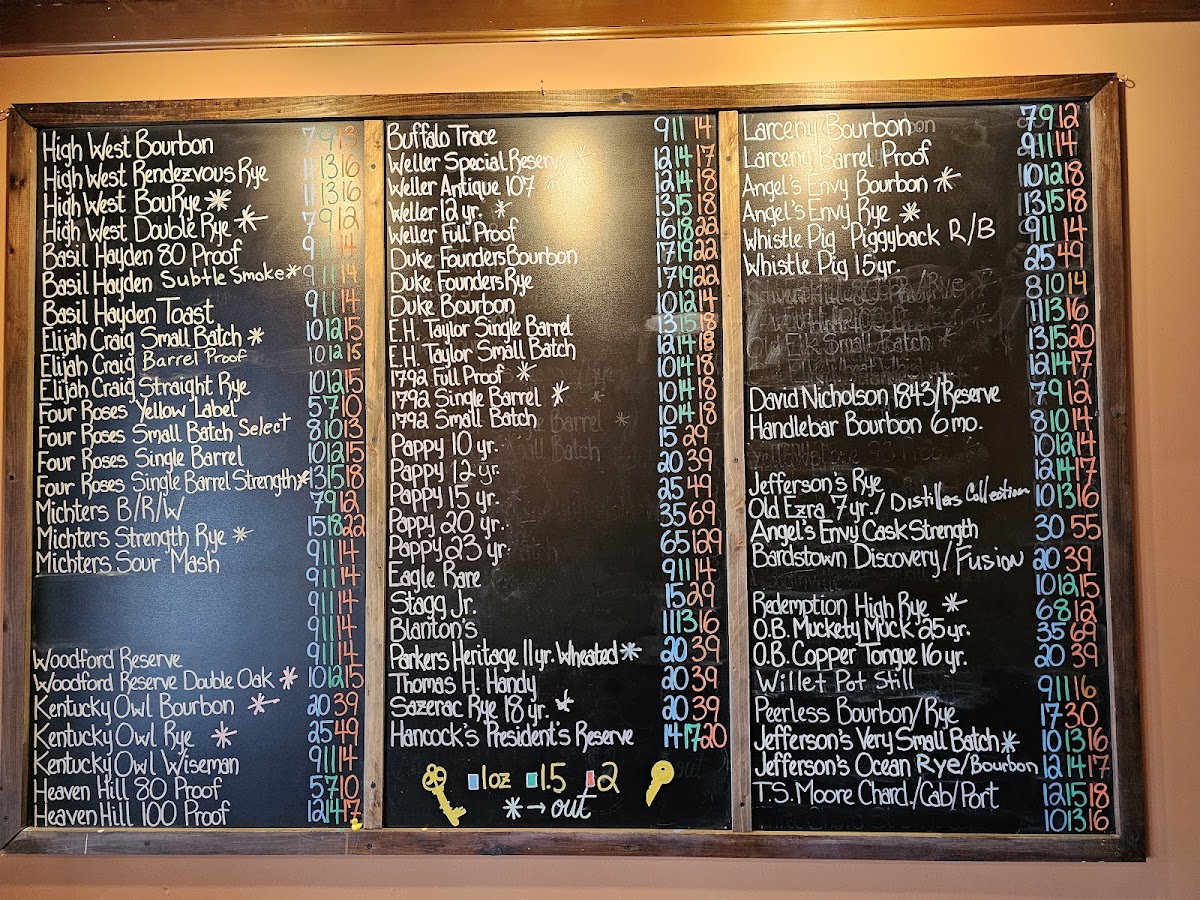 High West Bourbon 7 9 13
High West Rendezvous Rye 11 13 16
High West BouRye * 11 13 16
High West Double Rye * 7 9 12
Basil Hayden 80 Proof 9 11 14
Basil Hayden Subtle Smoke * 9 11 14
Basil Hayden Toast 9 11 14
Elijah Craig Small Batch * 10 12 15
Elijah Craig Barrel Proof 10 12 15
Elijah Craig Straight Rye 10 12 15
Four Roses Yellow Label 5 7 10
Four Roses Small Batch Select 8 10 13
Four Roses Single Barrel 10 12 15
Four Roses Single Barrel Strength * 13 15 18
Michters B/R/W 7 9 12
Michters Strength Rye * 15 18 22
Michters Sour Mash 9 11 14
9 11 14
9 11 14
9 11 14
Woodford Reserve 9 11 14
Woodford Reserve Double Oak * 10 12 15
Kentucky Owl Bourbon * 20 39
Kentucky Owl Rye * 25 49
Kentucky Owl Wiseman 9 11 14
Heaven Hill 80 Proof 5 7 10
Heaven Hill 100 Proof 12 14 17
Buffalo Trace 9 11 14
Weller Special Reserve 12 14 17
Weller Antique 107 12 14 18
Weller 12 yr. * 13 15 18
Weller Full Proof 16 18 22
Duke Founders Bourbon 17 19 22
Duke Founders Rye 17 19 22
Duke Bourbon 10 12 14
E.H. Taylor Single Barrel 13 15 18
E.H. Taylor Small Batch 12 14 18
1792 Full Proof * 10 14 18
1792 Single Barrel * 10 14 18
1792 Small Batch 10 14 18
Pappy 10 yr. 15 29
Pappy 12 yr. 20 39
Pappy 15 yr. 25 49
Pappy 20 yr. 35 69
Pappy 23 yr. 65 129
Eagle Rare 9 11 14
Stagg Jr. 15 29
Blanton's 11 13 16
Parkers Heritage 11 yr. Wheated * 20 39
Thomas H. Handy 20 39
Sazerac Rye 18 yr. * 20 39
Hancock's President's Reserve 14 17 20
1oz 1.5 2
* → out
Larceny Bourbon 7 9 12
Larceny Barrel Proof 9 11 14
Angel's Envy Bourbon * 10 12 18
Angel's Envy Rye * 13 15 18
Whistle Pig Piggyback R/B 9 11 14
Whistle Pig 15 yr. 25 49
8 10 14
11 13 16
13 15 20
12 14 17
David Nicholson 1843/Reserve 7 9 12
Handlebar Bourbon 6 mo. 8 10 14
10 12 14
Jefferson's Rye 12 14 17
Old Ezra 7 yr./ Distillers Collection 10 13 16
Angel's Envy Cask Strength 30 55
Bardstown Discovery/Fusion 20 39
10 12 15
Redemption High Rye * 6 8 12
O.B. Muckety Muck 25 yr. 35 69
O.B. Copper Tongue 16 yr. 20 39
Willet Pot Still 9 11 16
Peerless Bourbon/Rye 17 30
Jefferson's Very Small Batch * 10 13 16
Jefferson's Ocean Rye/Bourbon 12 14 17
T.S. Moore Chard./Cab/Port 12 15 18
10 13 16